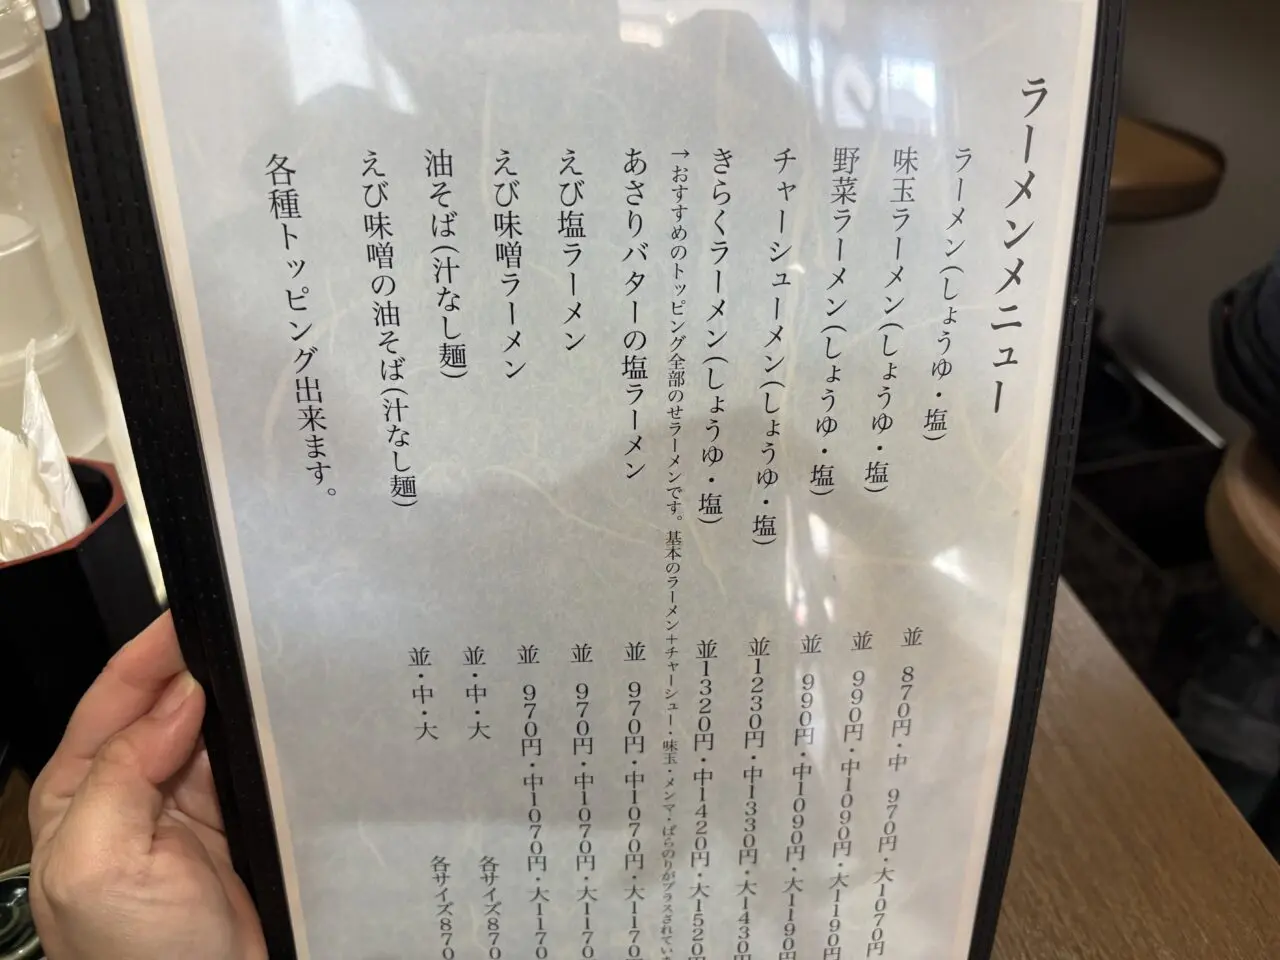 ラーメンメニュー
ラーメン(しょうゆ・塩) 並 870円・中 970円・大1070円
味玉ラーメン(しょうゆ・塩) 並 990円・中1090円・大1190円
野菜ラーメン(しょうゆ・塩) 並 990円・中1090円・大1190円
チャーシューメン(しょうゆ・塩) 並1230円・中1330円・大1430円
きらくラーメン(しょうゆ・塩) 並1320円・中1420円・大1520円
→おすすめのトッピング全部のせラーメンです。基本のラーメン+チャーシュー・味玉・メンマ・ばらのりがプラスされていま
あさりバターの塩ラーメン 並 970円・中1070円・大1170円
えび塩ラーメン 並 970円・中1070円・大1170
えび味噌ラーメン 並 970円・中1070円・大1170
油そば(汁なし麺) 並・中・大 各サイズ870
えび味噌の油そば(汁なし麺) 並・中・大 各サイズ870
各種トッピング出来ます。